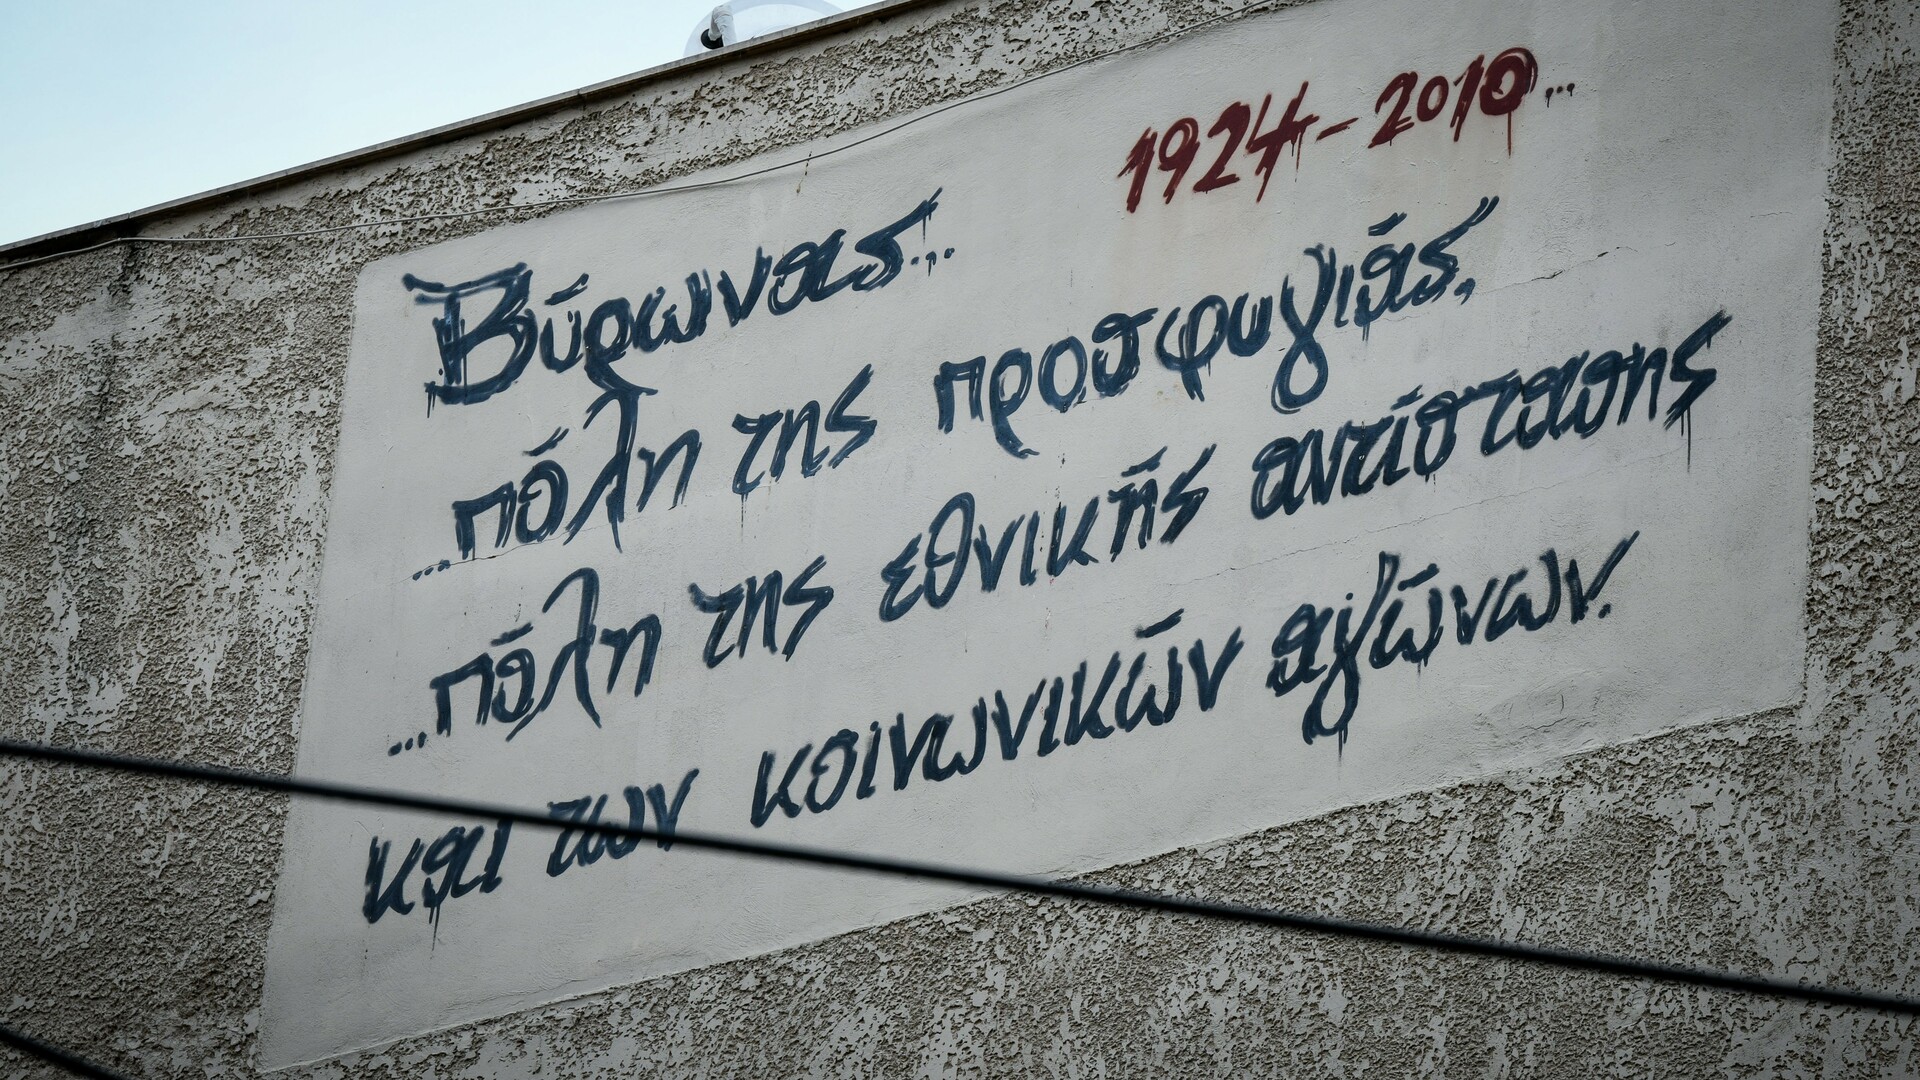 1924-2010...
Βύρωνας...
...πόλη της προσφυγιάς,
...πόλη της εθνικής αντίστασης
και των κοινωνικών αγώνων.